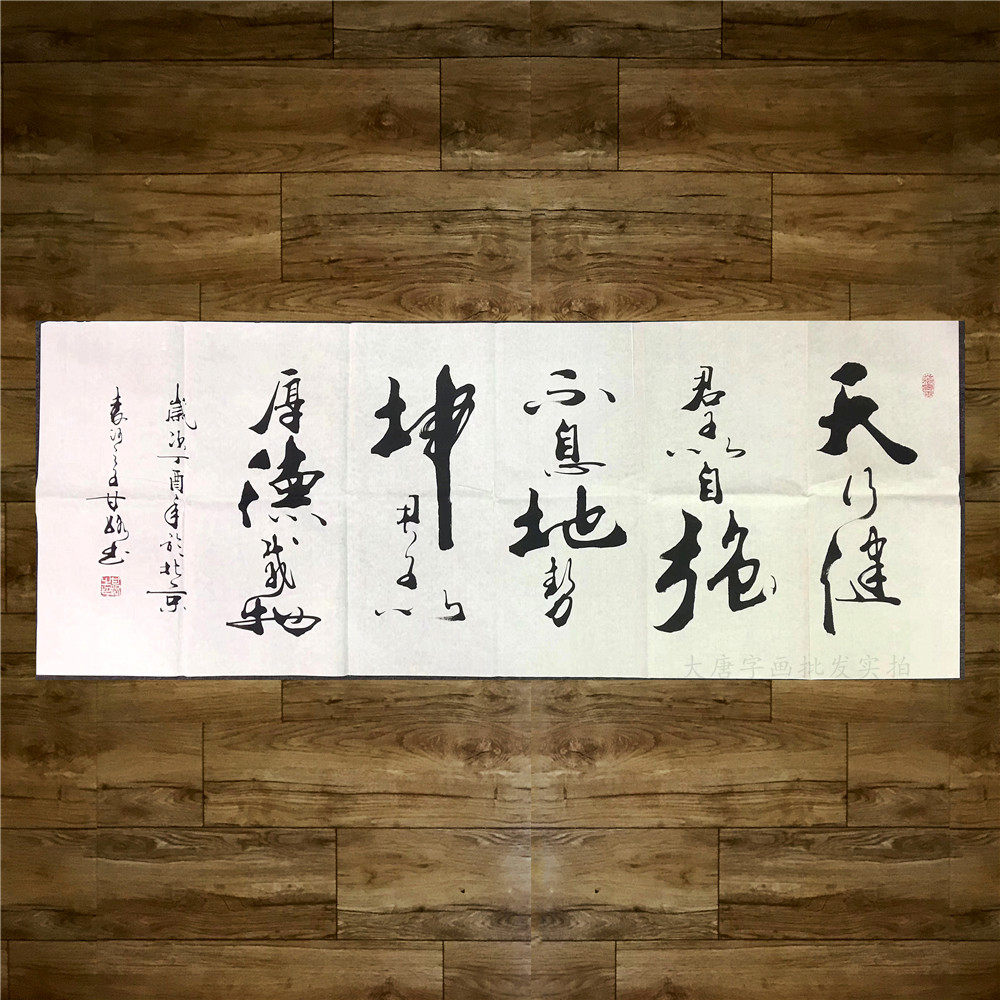 天行健
君子以自强
不息地势
坤君子以
厚德载物
岁次丁酉年於北京
书
大唐字画批发实拍